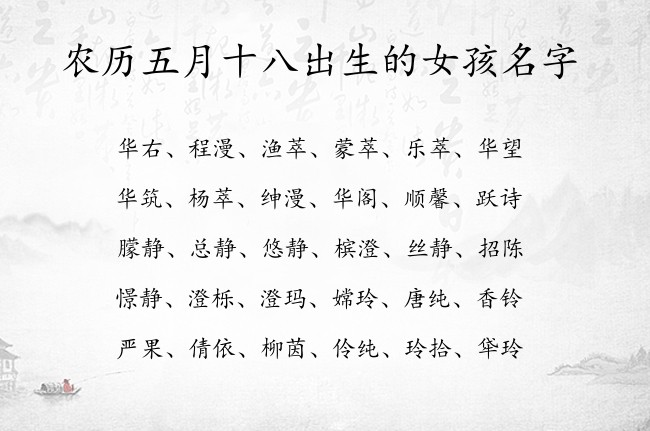 农历五月十八出生的女孩名字
华右、程漫、渔萃、蒙萃、乐萃、华望
华筑、杨萃、绅漫、华阁、顺馨、跃诗
朦静、总静、悠静、槟澄、丝静、招陈
憬静、澄栎、澄玛、嫦玲、唐纯、香铃
严果、倩依、柳茵、伶纯、玲拾、华玲